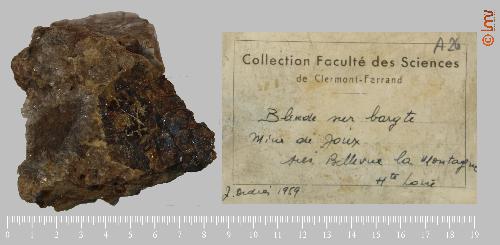 A 26
Collection Faculté des Sciences
de Clermont-Ferrand
Blende sur baryte
Mine de Joux
près Bellevue la Montagne
Hte Loire
1959
lmv
0 1 2 3 4 5 6 7 8 9 10 11 12 13 14 15 16 17 18 19